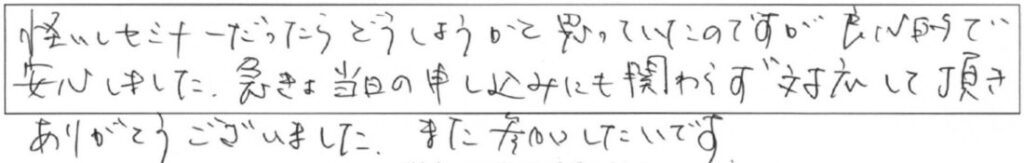 怪しいセミナーだったらどうしようかと思っていたのですが良い内容で
安心しました。急きょ当日の申し込みにも関わらず対応して頂き
ありがとうございました。また参加したいです。